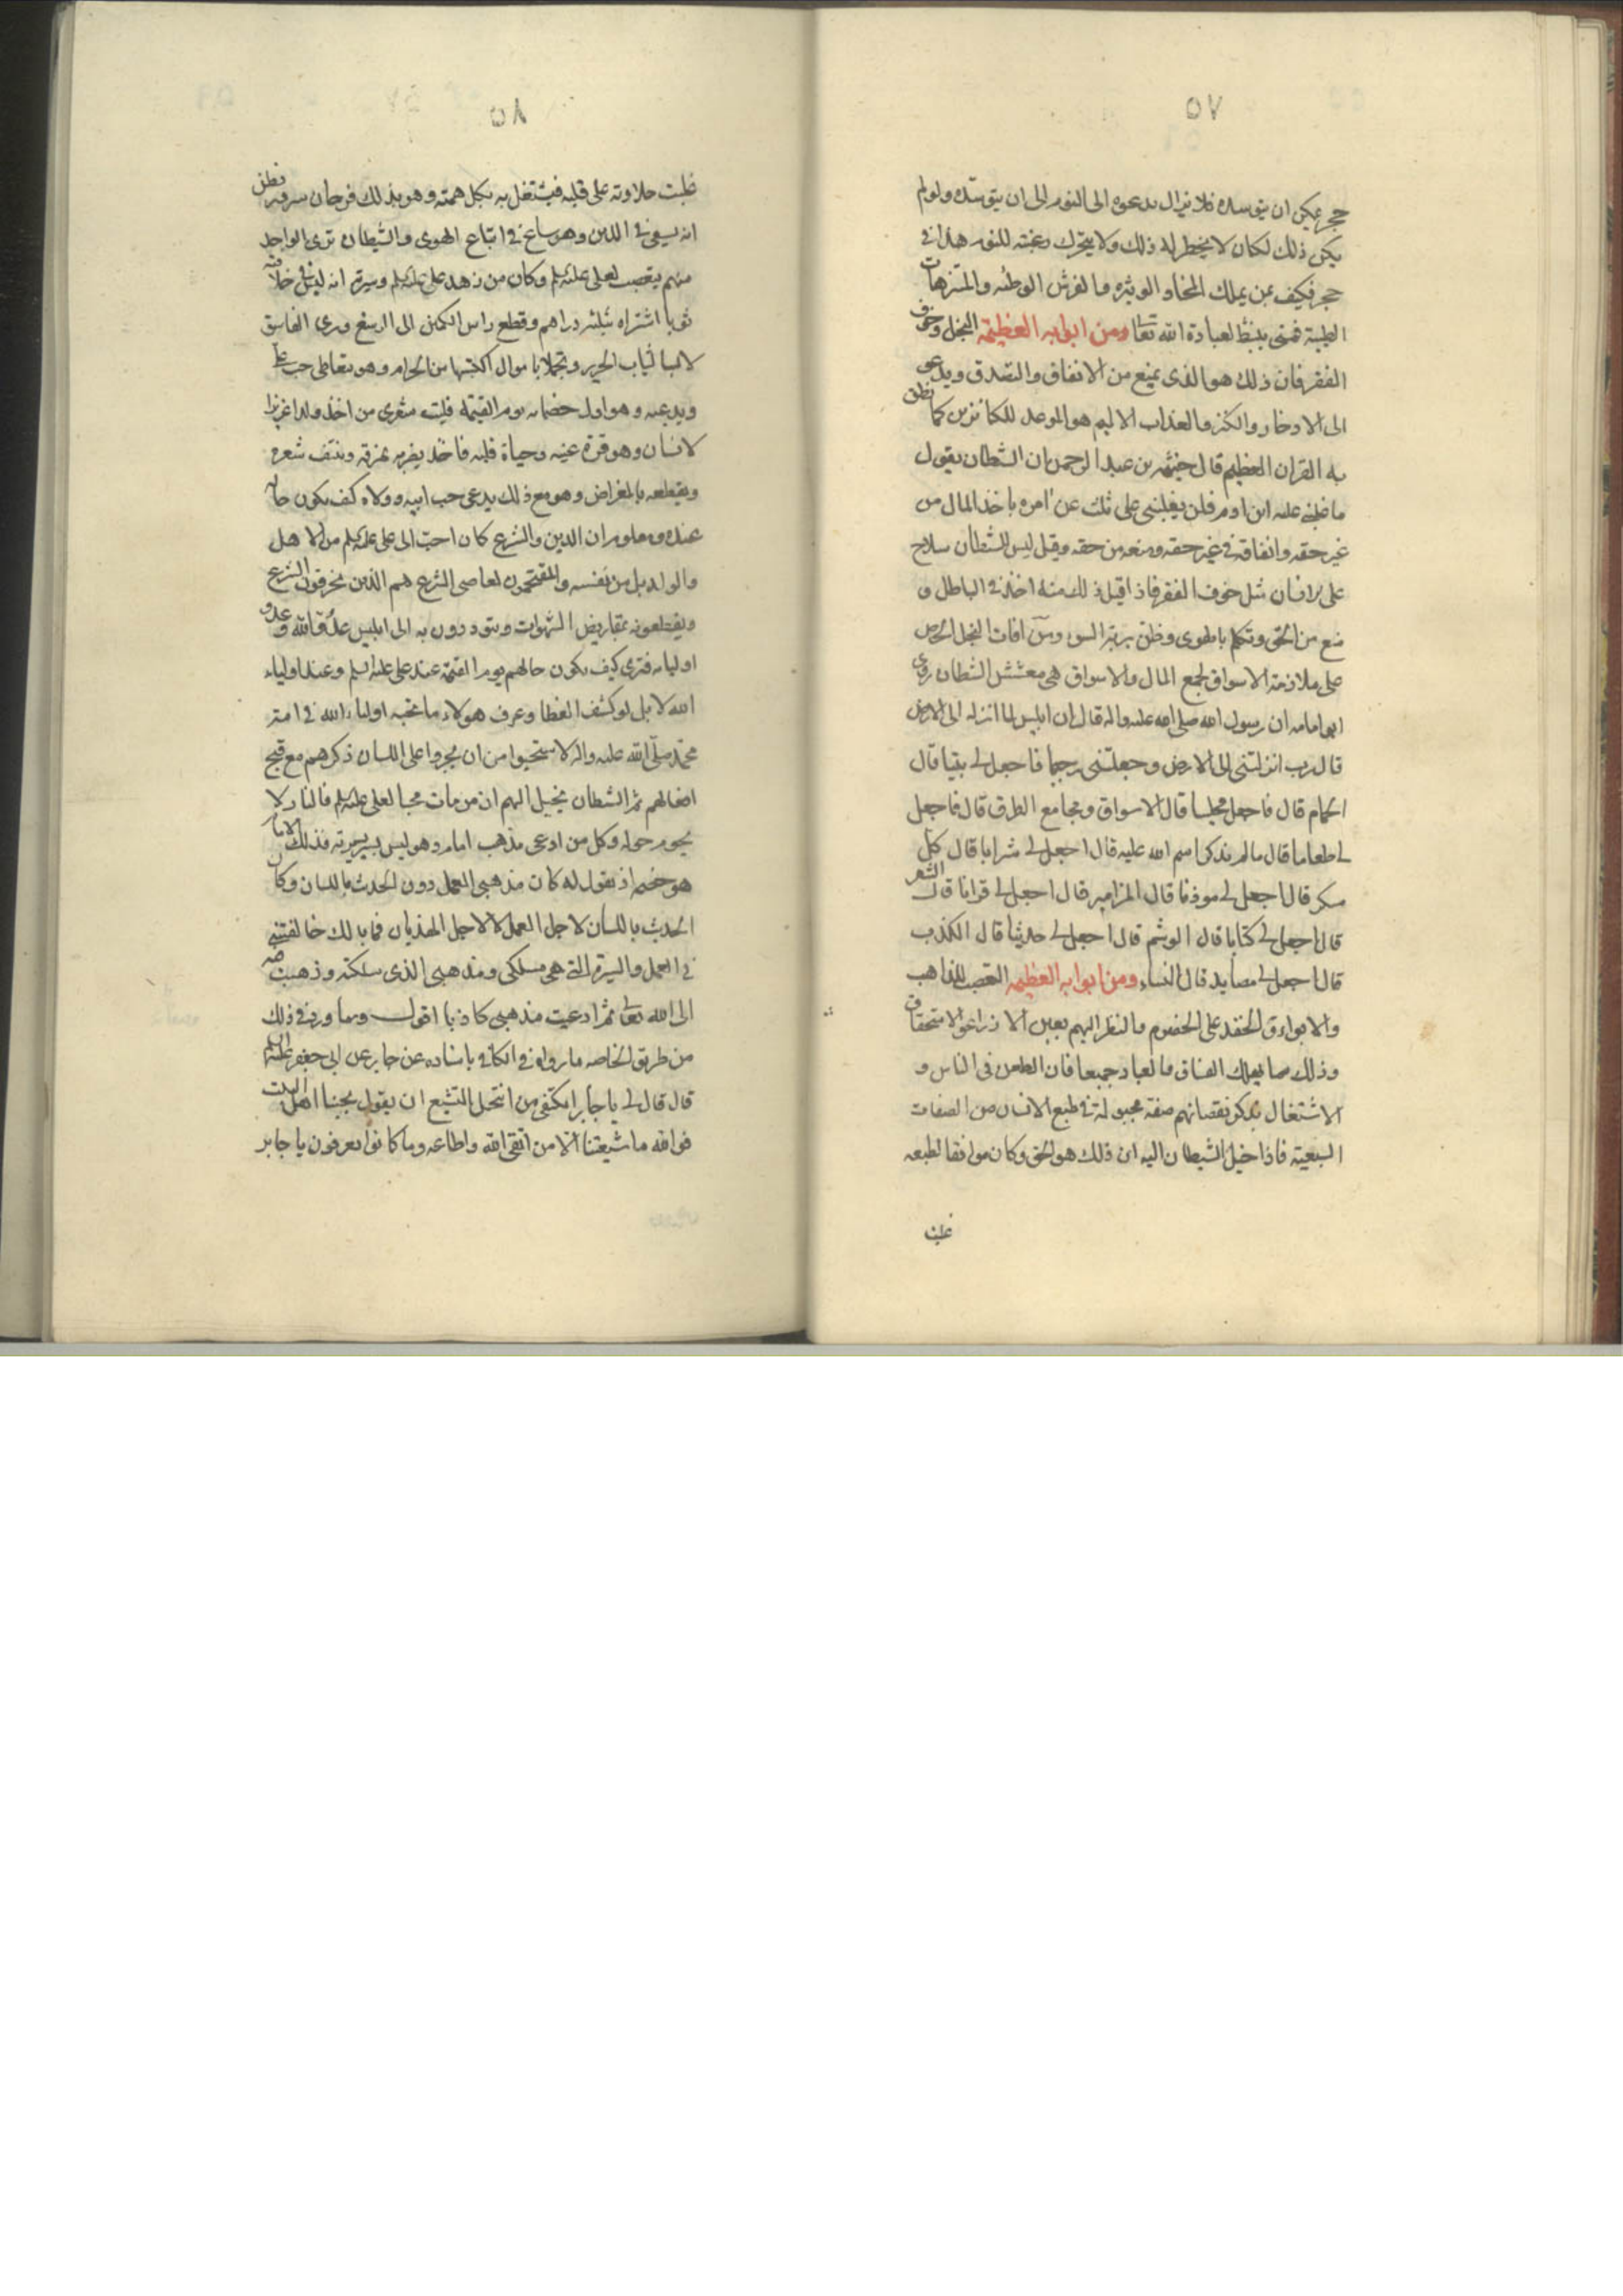 ٥٧
حجر يمكن ان يتوسده فلا يزال يدعوه الى النوم الى ان يتوسده ولو لم
يكن ذلك لكان لا يخطر له ذلك ولا يتحرك رغبته للنوم هذا في
حجر فكيف بمن يملك المخاد الوثيره والفرش الوطئه والمتنزهات
الطيبة فمتى ينشط لعبادة الله تعالى ومن ابوابه العظيمة البخل وخوف
الفقر فان ذلك هو الذى يمنع من الانفاق والتصدق ويدعو
الى الادخار والكنز والعذاب الاليم هو الموعد للكانزين كما نطق
به القران العظيم قال خيثمه بن عبد الرحمن ان الشيطان يقول
ما غلبنى عليه ابن ادم فلن يغلبنى على ثلث عن امره باخذ المال من
غير حقه وانفاقه في غير حقه ومنعه من حقه وقيل ليس للشيطان سلاح
على الانسان مثل خوف الفقر فاذا قبل ذلك منه اخذ في الباطل و
منع من الحق وتكلم بالهوى وظن بربه السوء ومن افات البخل الحرص
على ملازمة الاسواق لجمع المال والاسواق هى معشش الشيطان روى
ابو امامه ان رسول الله صلى الله عليه واله قال ان ابليس لما انزله الى الارض
قال رب انزلتنى الى الارض وجعلتنى رجيما فاجعل لى بيتا قال
الحمام قال فاجعل مجلسا قال الاسواق ومجامع الطرق قال فاجعل
لى طعاما قال ما لم يذكر اسم الله عليه قال اجعل لى شرابا قال كل
مسكر قال اجعل لى موذنا قال المزامير قال اجعل لى قرانا قال الشعر
قال اجعل لى كتابا قال الوشم قال اجعل لى حديثا قال الكذب
قال اجعل لى مصايد قال النساء ومن ابوابه العظيمه التعصب للمذاهب
والاهواء والحقد على الخصوم والنظر اليهم بعين الازراء والاستحقار
وذلك مما يهلك الفساق والعباد جميعا فان الطعن في الناس و
الاشتغال بذكر نقصانهم صفة مجبولة في طبع الانسان من الصفات
السبعية فاذا خيل الشيطان اليه ان ذلك هو الحق وكان موافقا لطبعه
غلبت
٥٨
غلبت حلاوته على قلبه فيشتغل به بكل همته وهو بذلك فرحان مسرور يظن
انه يسعى في الدين وهو ساع في اتباع الهوى والشيطان ترى الواحد
منهم يتعصب لعلى عليه السلم وكان من زهد على عليه السلم وسيرته انه لبس في خلافته
ثوبا اشتراه بثلثه دراهم وقطع راس الكمين الى الرسغ وترى الفاسق
لابسا لثياب الحرير وتجملا باموال اكتسبها من الحرام وهو يتعاطى حب على
ويدعيه وهو اول خصمائه يوم القيمة فليت شعرى من اخذ ولدا عزيزا
لانسان وهو قرة عينه وحياة قلبه فاخذ يضربه يمزقه وينتف شعره
ويقطعه بالمقراض وهو مع ذلك يدعى حب ابيه وولاه كيف يكون حاله
عنده ومعلوم ان الدين والشرع كان احب الى على عليه السلم من الاهل
والولد بل من نفسه والمقتحمون لمعاصى الشرع هم الذين يخرقون الشرع
ويقطعونه بمقاريض الشهوات ويتوددون به الى ابليس عدو الله وعدو
اوليائه فترى كيف يكون حالهم يوم القيمة عند على عليه السلم وعند اولياء
الله لا بل لو كشف الغطا وعرف هولاء ما يحبه اولياء الله في امة
محمد صلى الله عليه واله لاستحيوا من ان يجروا على اللسان ذكرهم مع قبح
افعالهم ثم الشيطان يخيل اليهم ان من مات محبا لعلى عليه السلم فالنار لا
يحوم حوله وكل من ادعى مذهب امام وهو ليس يسير بسيرته فذلك الامام
هو خصمه اذ يقول له كان مذهبى العمل دون الحديث باللسان وكان
الحديث باللسان لاجل العمل لا لاجل الهذيان فما بالك خالفتنى
في العمل والسيرة التى هى مسلكى ومذهبى الذى سلكته وذهبت فيه
الى الله تعالى ثم ادعيت مذهبى كاذبا اقول ومما ورد في ذلك
من طريق الخاصه ما رواه في الكافى باسناده عن جابر عن ابى جعفر عليه السلم
قال قال لى يا جابر ايكتفى من انتحل التشيع ان يقول بحبنا اهل البيت
فوالله ما شيعتنا الا من اتقى الله واطاعه وما كانوا يعرفون يا جابر